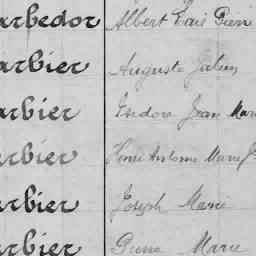 arbedor Albert Louis Pierre
arbier Auguste Julien
arbier Isidore Jean Mari
arbier Henri Antoine Marie J
arbier Joseph Marie
arbier Pierre Marie